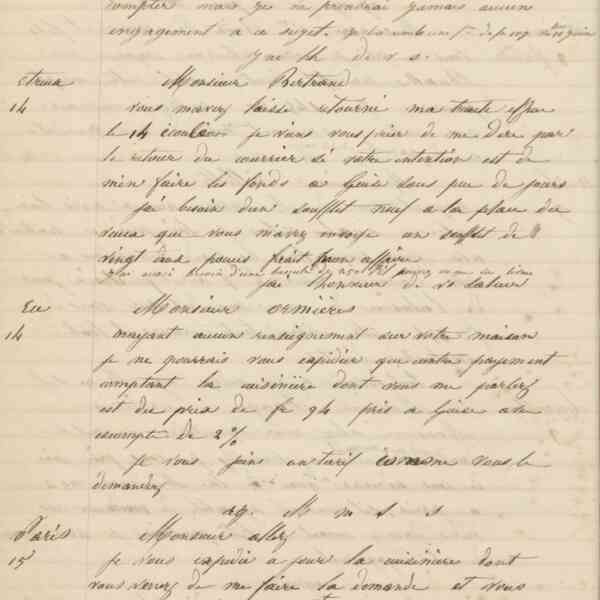 compter mais je ne prendrai jamais aucun
engagement a ce sujet.
j'ai lh de v s.
etreux Monsieur Bertrand
14 vous mavez laissé retourné ma traite
le 14 ecoulé je viens vous prier de me dire par
le retour du courrier si votre intention est de
men faire les fonds a Guise sous peu de jours
jai besoin dun soufflet neuf a la place de
ceux que vous mavez envoyé un soufflet de
vingt deux pouces ferait mon affaire
jai lhonneur de vs saluer
Eu Monsieur ormières
14 nayant aucun renseignement sur votre maison
je ne pourrais vous expédier que contre payement
comptant la cuisinière dont vous me parlez
est du prix de fr 94 pris a Guise
escompte de 2 %
je vous joins un tarif comme vous le
demandez
ag. M m s s
Paris Monsieur allez
15 je vous expédie a jour la cuisinière dont
vous venez de me faire la demande et vous